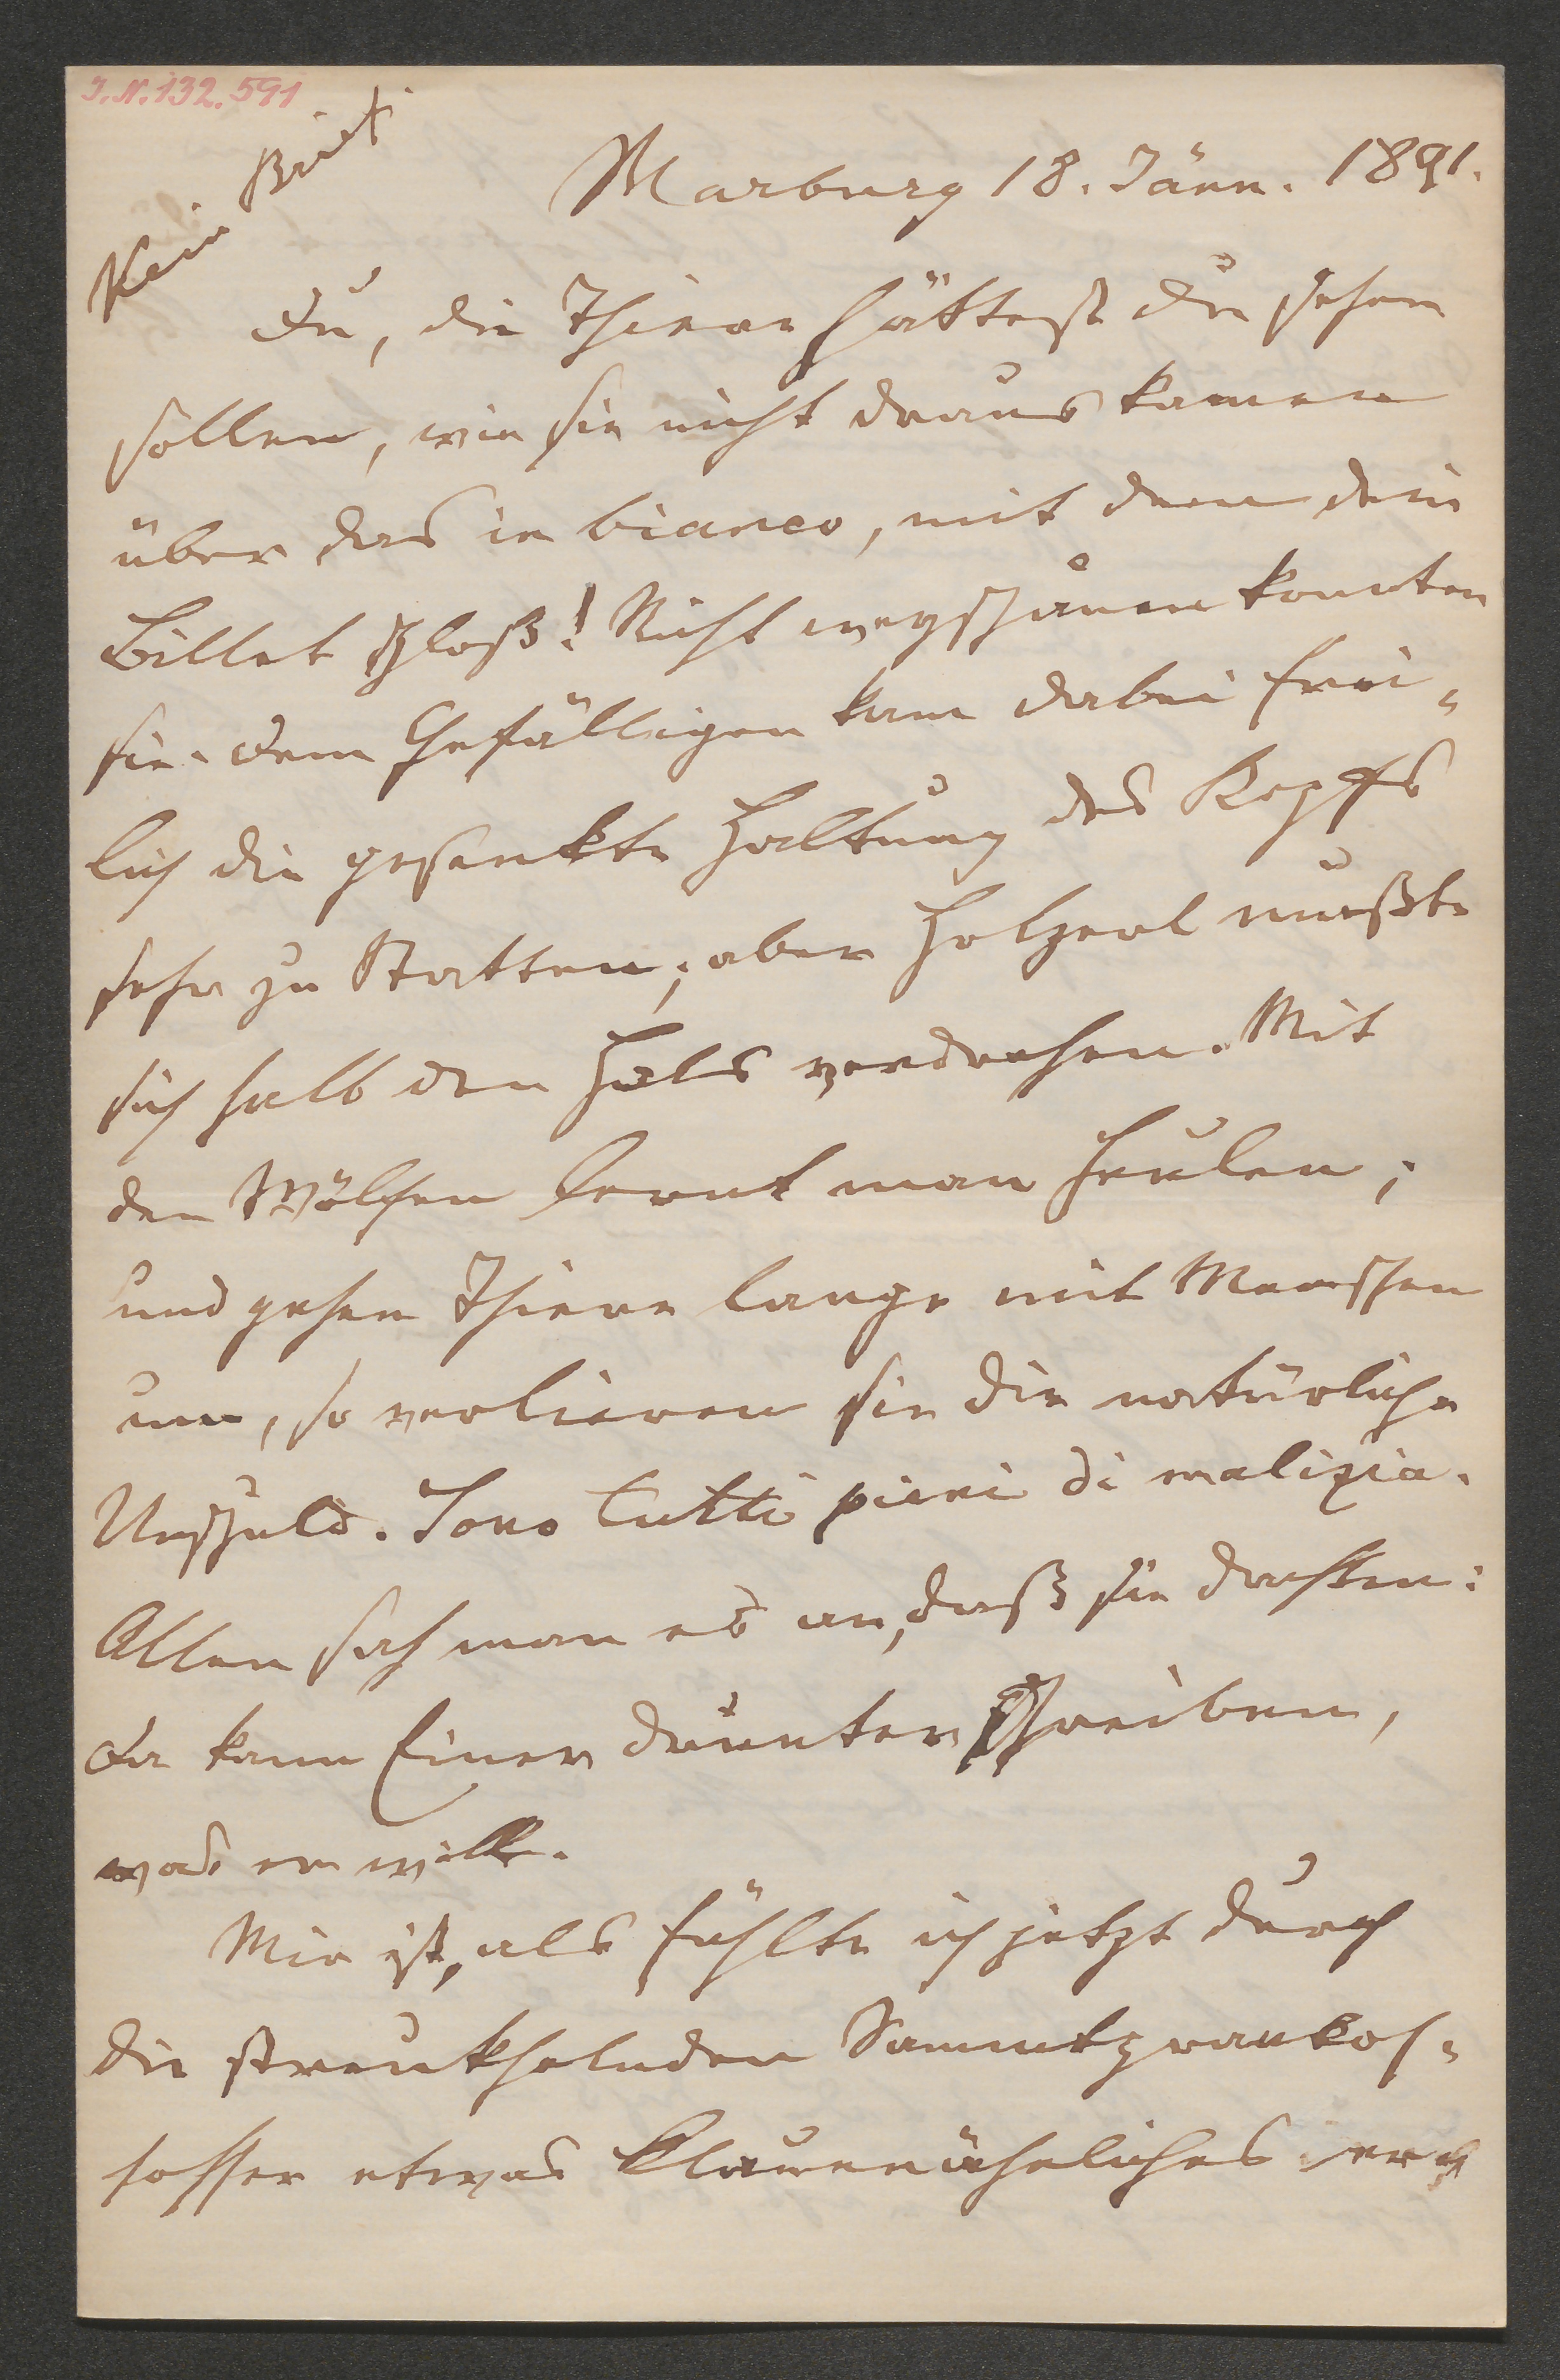 I.N. 132.591
Kein Brief
Marburg 18. Jänn. 1891.
Du, die Thiere hättest du sehen
sollen, wie sie nicht draus kamen
über das in bianco, mit dem dein
Billet schloß! Nicht wegschauen konnten
sie. Dem Gefälligen kam dabei frei-
lich die gesenkte Haltung des Kopfs
sehr zu Statten; aber Holzerl mußte
sich halb den Hals verdrehen. Mit
den Wölfen lernt man heulen;
und gehen Thiere lange mit Menschen
um, so verlieren sie die natürliche
Unschuld. Sono tutti pieni di malizia.
Allen sah man es an, daß sie dachten:
da kann Einer drunter schreiben,
was er will.
Mir ist, als fühlte ich jetzt durch
die
etwas Klauenähnliches